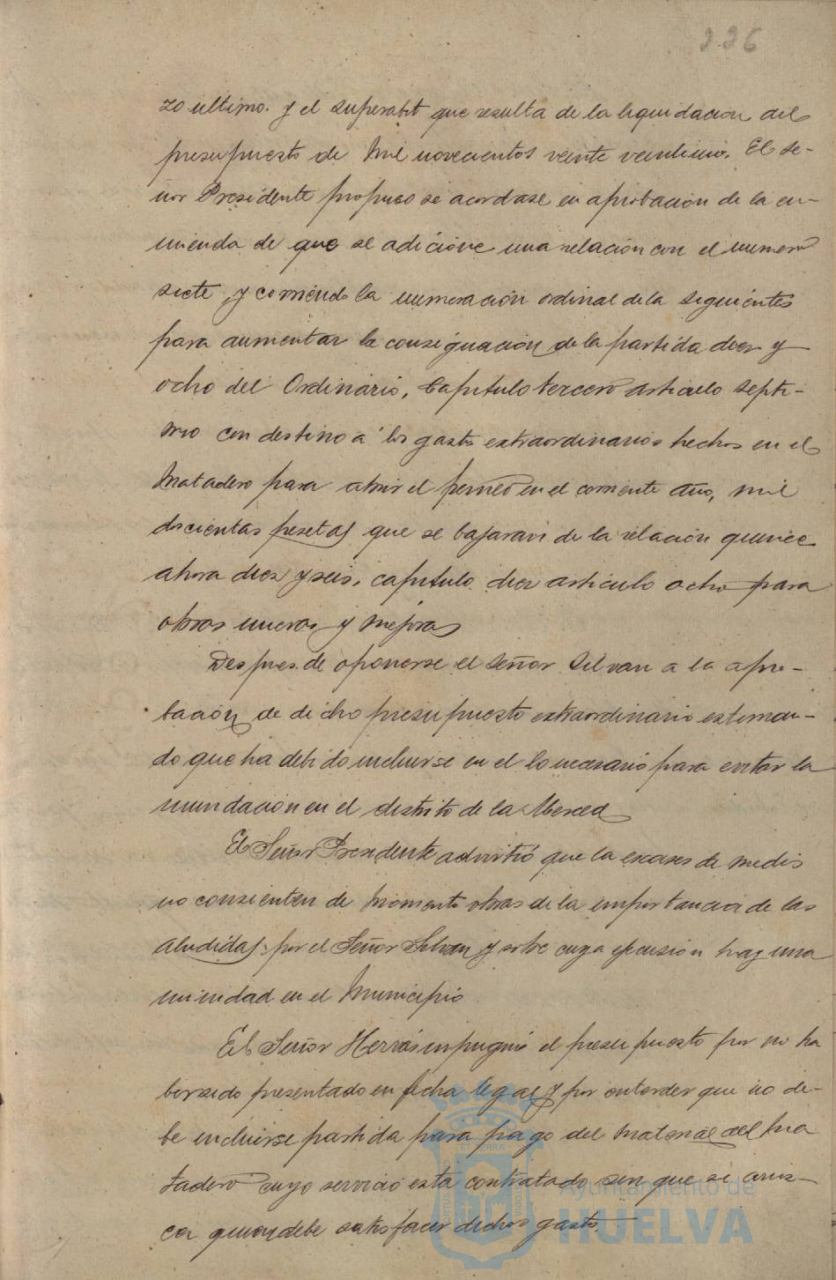 226
zo ultimo. y el superabit que resulta de la liquidacion del
presupuesto de Mil novecientos veinte veintiuno. El se-
ñor Presidente propuso se acordase en aprobación de la en-
mienda de que se adicióne una relación con el numero
siete y corriendo la numeración ordinal de la siguientes
para aumentar la consignación de la partida diez y
ocho del Ordinario, Capitulo tercero articulo septi-
mo con destino a los gastos extraordinarios hechos en el
Matadero para abrir el perneo en el corriente año, mil
doscientas pesetas que se bajaran de la relación quince
ahora diez y seis, capitulo diez articulo ocho para
obras nuevas y mejoras
Despues de oponerse el señor Silvan a la apro-
bación de dicho presupuesto extraordinario estiman-
do que ha debido incluirse en el lo necesario para evitar la
inundación en el distrito de la Merced
El Señor Presidente advirtió que la escases de medios
no consienten de momento obras de la importancia de las
aludidas por el Señor Silvan y sobre cuya ejecusión hay una
nimidad en el Municipio
El Señor Herrás impugnó el presupuesto por no ha
ber sido presentado en fecha legal y por entender que no de-
be incluirse partida para pago del material del Ma
tadero cuyo servicio esta contratado sin que se
car quien debe satisfacer dichos gastos.
Ayuntamiento de
HUELVA